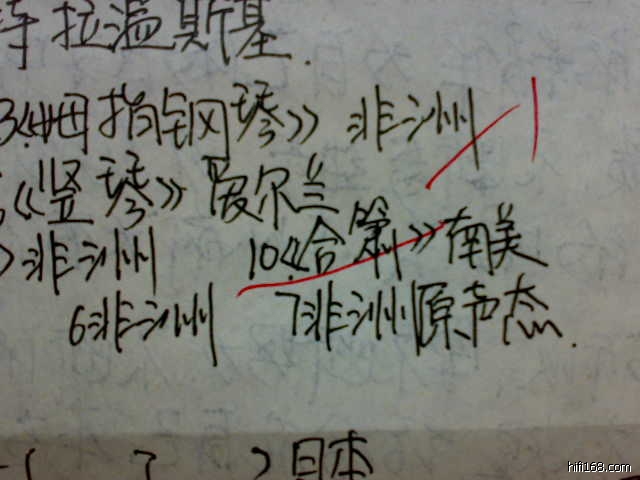 拉温斯基.
3《姆指钢琴》 非洲 1
《竖琴》 爱尔兰
》非洲 10《合箫》南美
6非洲 7非洲原声态.
( ? ) 日本
hifi168.com